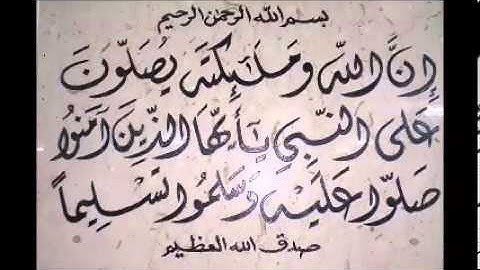 بسم الله الرحمن الرحيم
إنَّ اللهَ وَمَلَـٰئِكَتَهُ يُصَلُّونَ
عَلَى النَّبِيِّ يَـٰأَيُّهَا الَّذِينَ آمَنُوا
صَلُّوا عَلَيْهِ وَسَلِّمُوا تَسْلِيماً
صدق الله العظيم